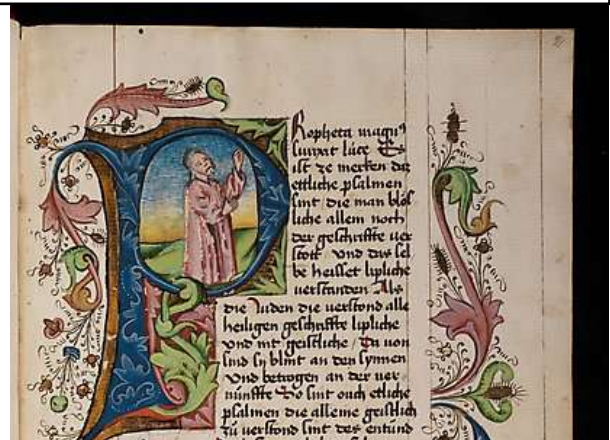 Propheta magnus
surrexit luce Es
ist ze merken daz
ettliche psalmen
sint die man blös
liche allem noch
der geschriffte ver
stott vnd das sel
be heisset lipliche
verstanden Als
die Juden die verstond alle
heiligen geschriffte lipliche
vnd nit geistliche / Da von
sind sy blint an den synnen
vnd betrogen an der ver
nünffte So sint ouch etliche
psalmen die alleine geistlich
zü verstond sint des entund